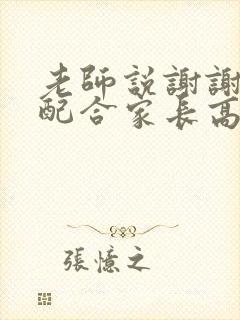 老師說謝謝
配合家長高
張憶之